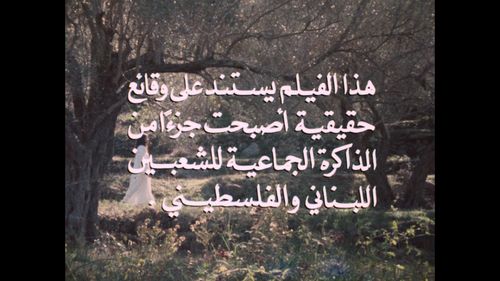 هذا الفيلم يستند على وقائع
حقيقية أصبحت جزءًا من
الذاكرة الجماعية للشعبين
اللبناني والفلسطيني .